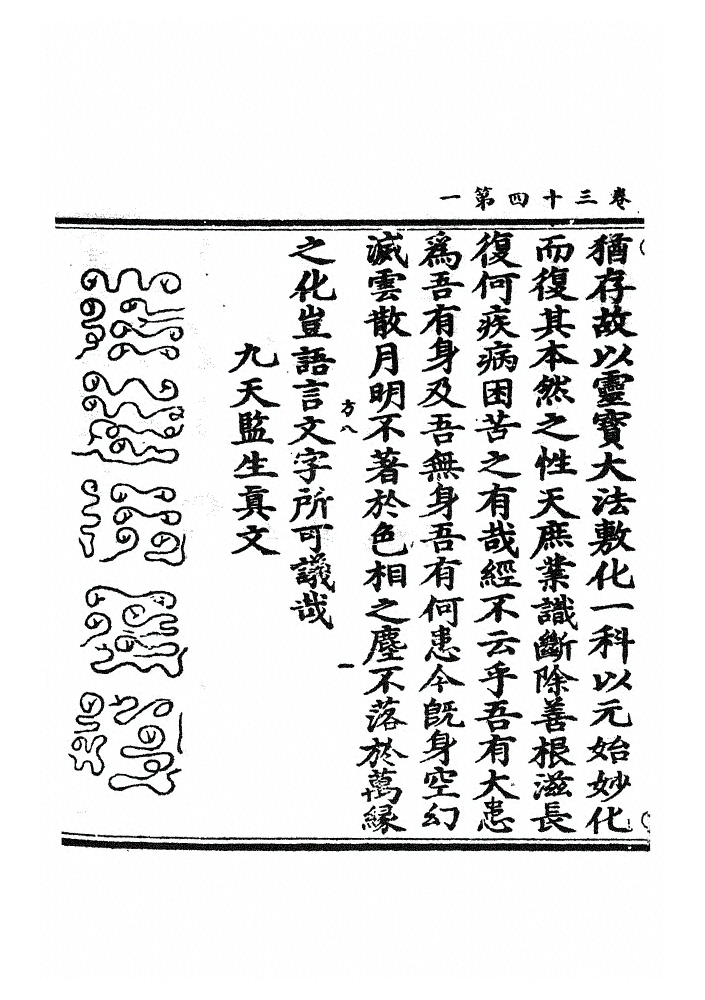 卷三十四第一
猶存故以靈寶大法敷化一科以元始妙化
而復其本然之性天庶業識斷除善根滋長
復何疾病困苦之有哉經不云乎吾有大患
爲吾有身及吾無身吾有何患今旣身空幻
滅雲散月明不著於色相之塵不落於萬緣
方八
一
之化豈語言文字所可議哉
九天監生真文